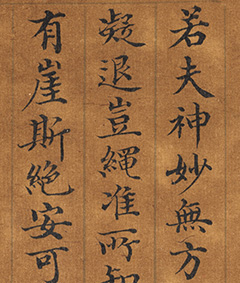 若夫神妙無方
凝退豈繩准所知
有崖斯絕安可